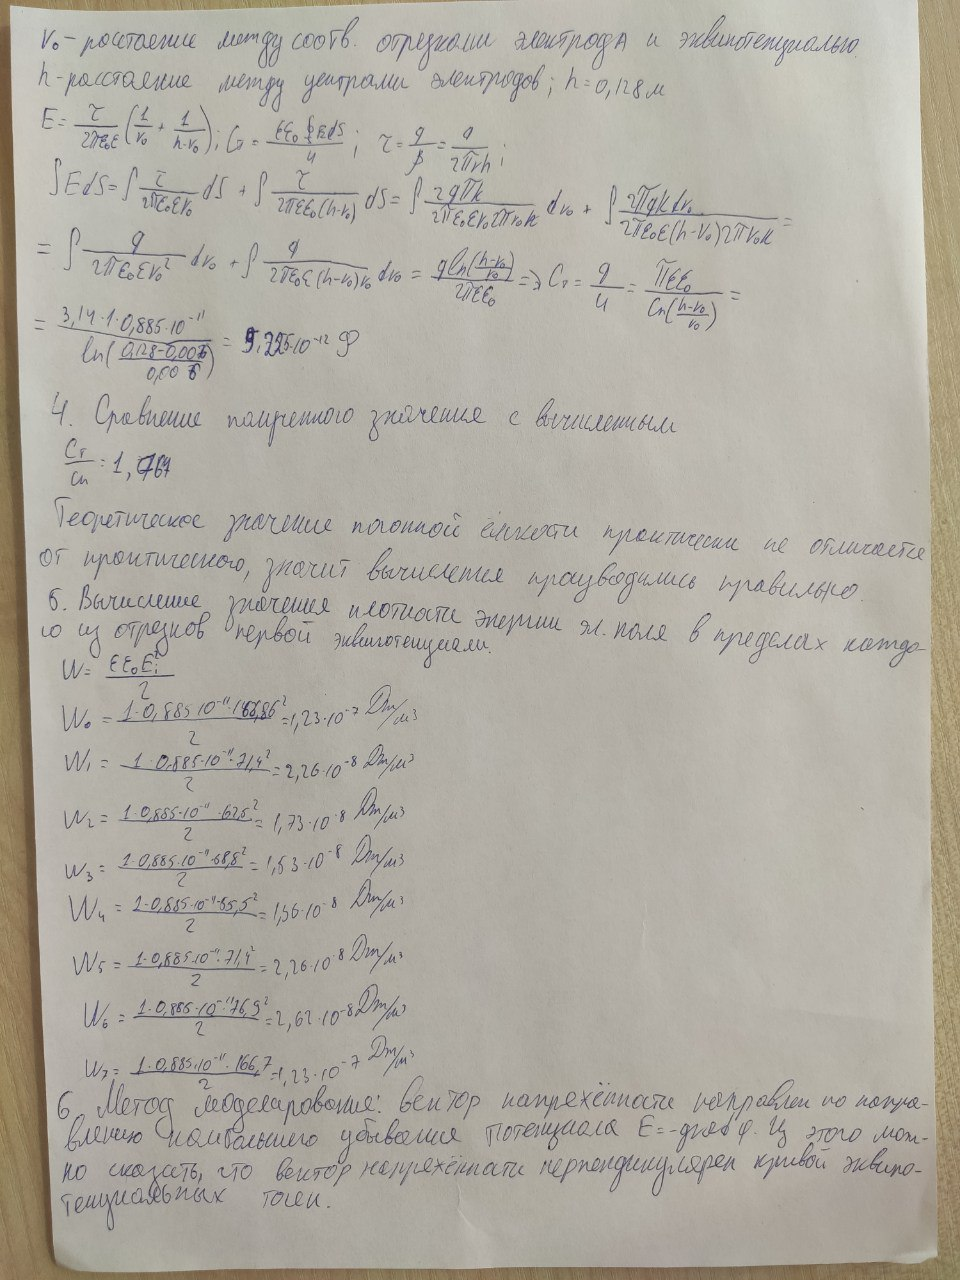 r₀ - расстаение между соотв. отрезками электрода и эквипотенциалью.
h - расстаение между центрами электродов; h = 0,128 м
E = τ/(2πε₀ε) (1/r₀ + 1/(h-r₀)); Cт = εε₀∮EdS/U; τ = q/β = q/(2πrh);
∫EdS = ∫ τ/(2πε₀εr₀) dS + ∫ τ/(2πεε₀(h-r₀)) dS = ∫ 2qπk/(2πε₀εr₀2πr₀k) dr₀ + ∫ 2πqkdr₀/(2πε₀ε(h-r₀)2πr₀k) =
= ∫ q/(2πε₀εr₀²) dr₀ + ∫ q/(2πε₀ε(h-r₀)r₀) dr₀ = q ln((h-r₀)/r₀)/(2πεε₀) => Cт = q/U = πεε₀/(ln((h-r₀)/r₀)) =
= 3,14·1·0,885·10⁻¹¹/(ln((0,128-0,006)/0,006)) = 9,225·10⁻¹² Ф
4. Сравнение полученного значения с вычисленным
Cт/Cп = 1,0767
Теоретическое значение погонной ёмкости практически не отличается
от практического, значит вычисления производились правильно.
5. Вычисление значения плотности энергии эл. поля в пределах каждо-
го из отрезков первой эквипотенциали.
W = εε₀Eᵢ²/2
W₀ = 1·0,885·10⁻¹¹·166,86²/2 = 1,23·10⁻⁷ Дж/м³
W₁ = 1·0,885·10⁻¹¹·71,4²/2 = 2,26·10⁻⁸ Дж/м³
W₂ = 1·0,885·10⁻¹¹·62,5²/2 = 1,73·10⁻⁸ Дж/м³
W₃ = 1·0,885·10⁻¹¹·58,8²/2 = 1,53·10⁻⁸ Дж/м³
W₄ = 1·0,885·10⁻¹¹·55,5²/2 = 1,36·10⁻⁸ Дж/м³
W₅ = 1·0,885·10⁻¹¹·71,4²/2 = 2,26·10⁻⁸ Дж/м³
W₆ = 1·0,885·10⁻¹¹·76,9²/2 = 2,62·10⁻⁸ Дж/м³
W₇ = 1·0,885·10⁻¹¹·166,7/2 = 1,23·10⁻⁷ Дж/м³
6. Метод моделирования: вектор напряжённости направлен по напра-
влению наибольшего убывания потенциала E = -grad φ. Из этого мож-
но сказать, что вектор напряжённости перпендикулярен кривой эквипо-
тенциальных точек.